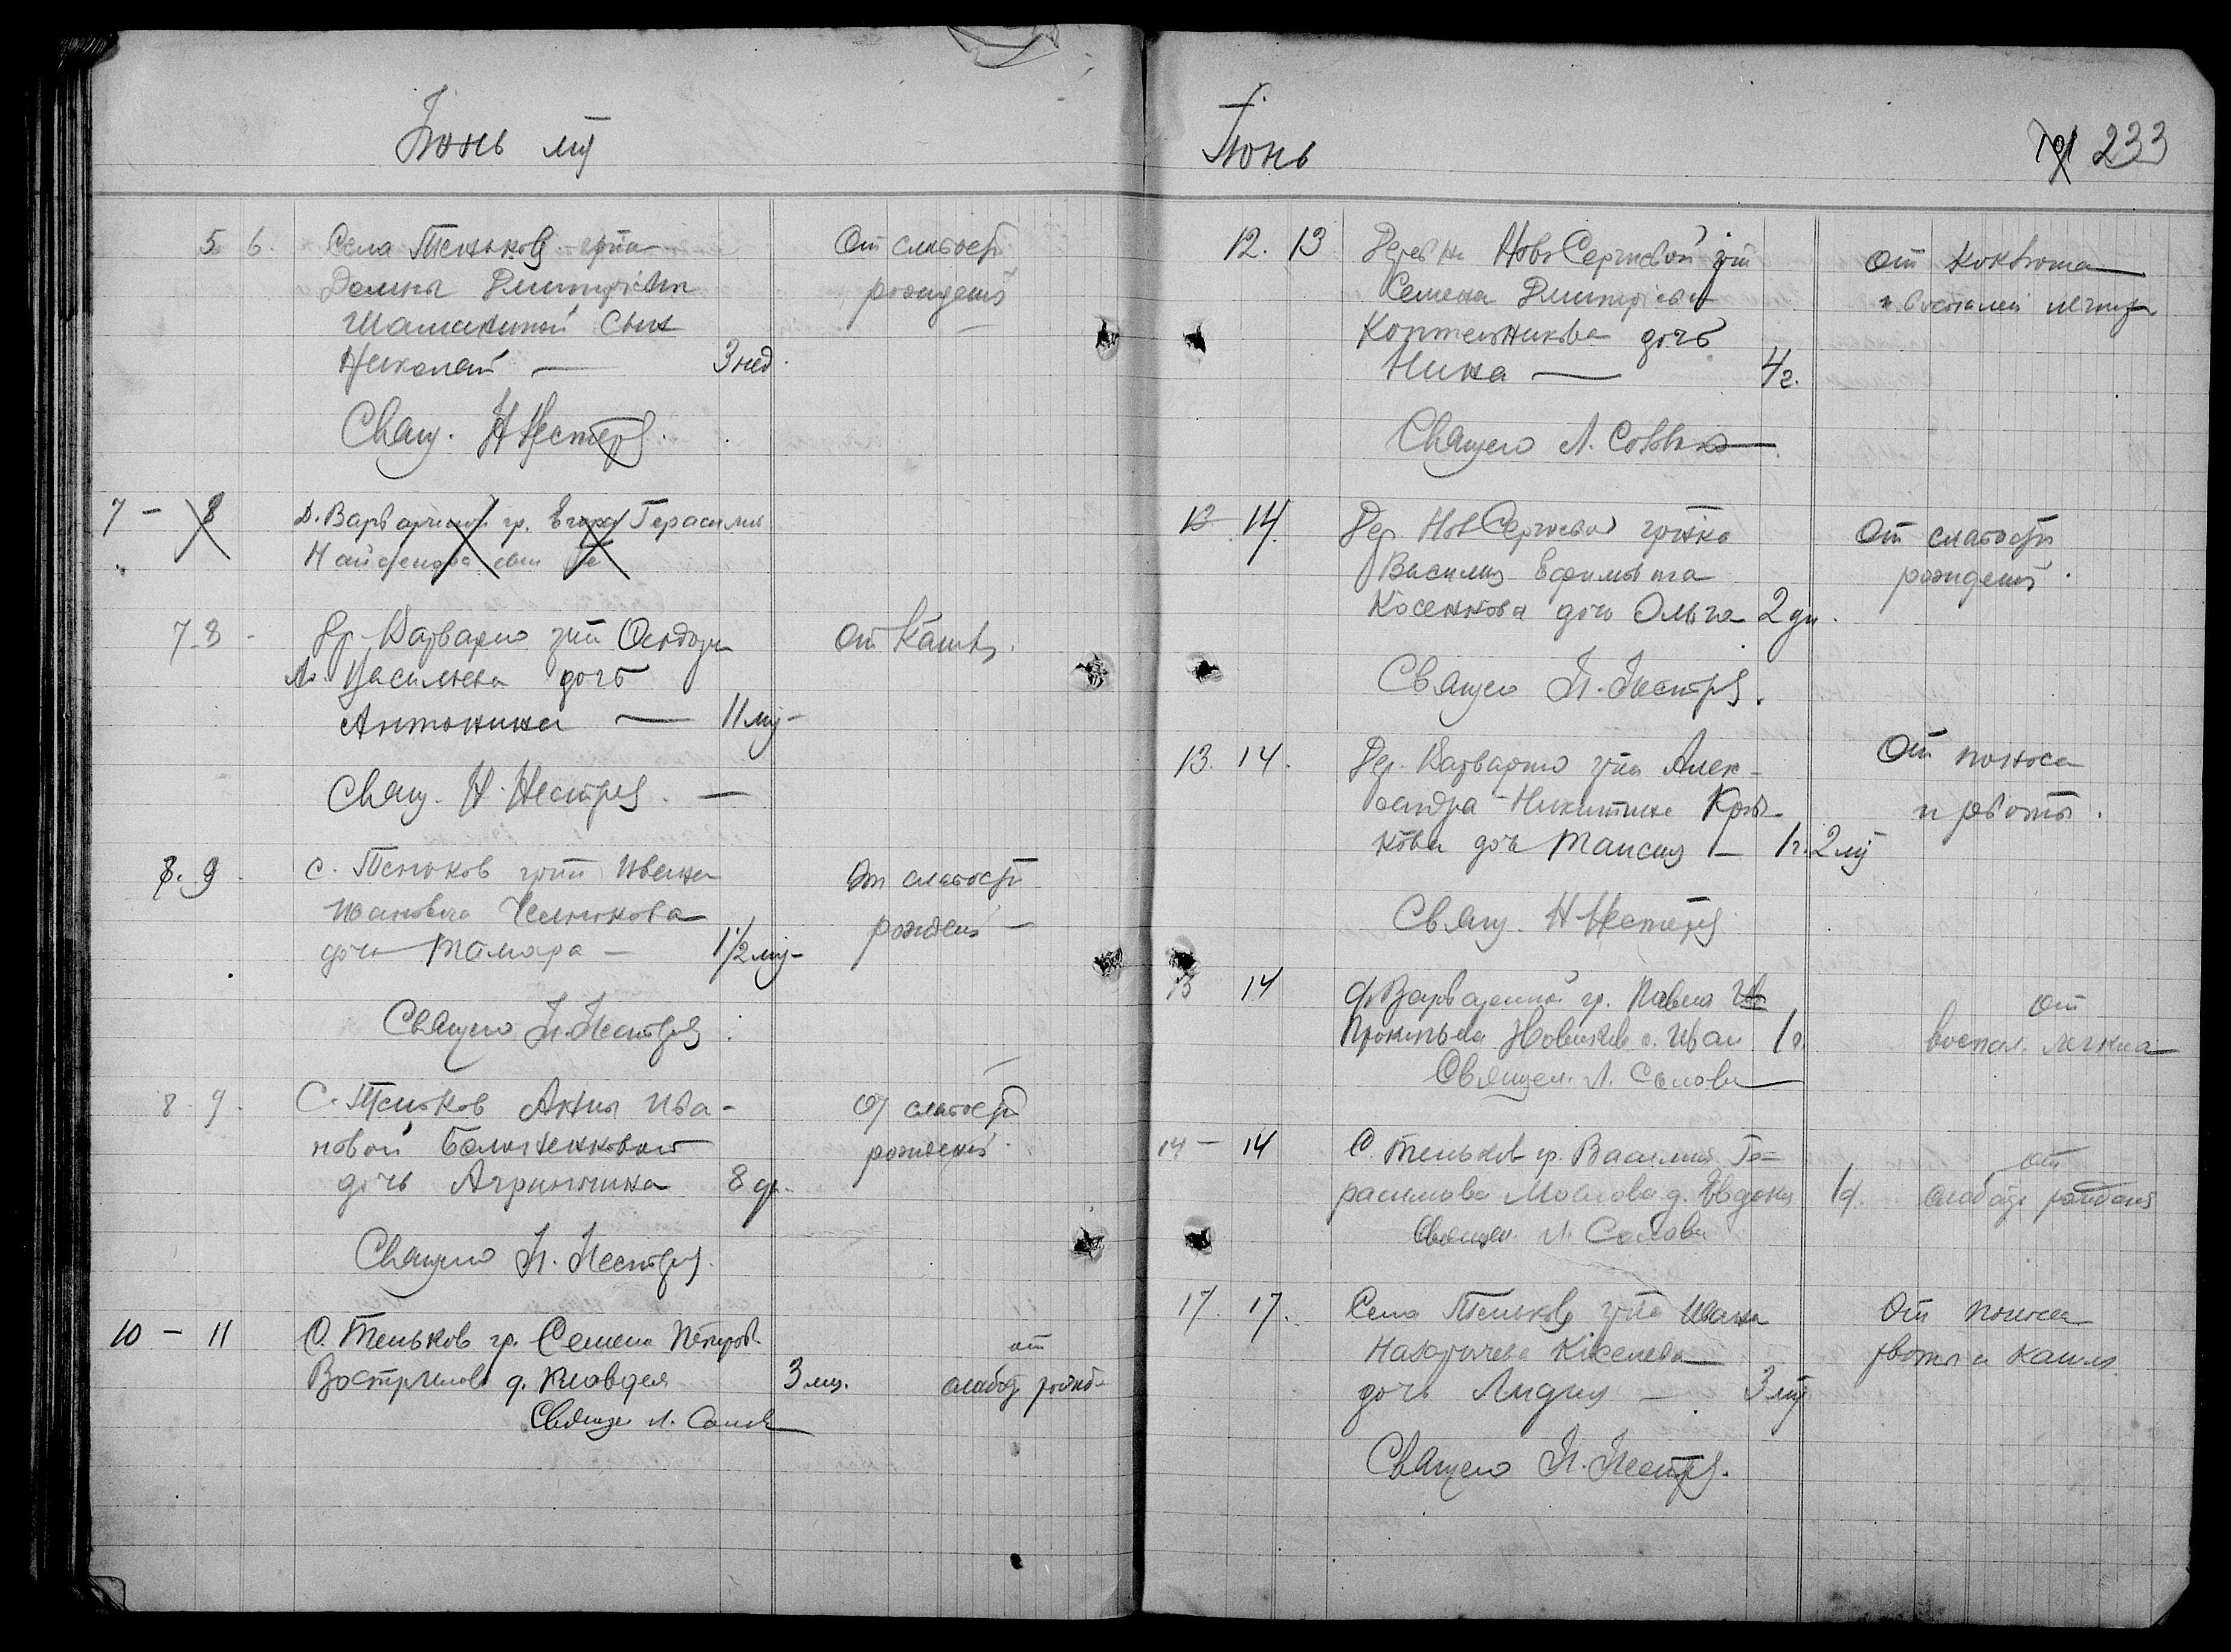 Iюнь мц
5 6. Села Теньков гр-на
Домны Дмитрiевн
Шамакиной сын
Николай — 3 нед.
От слабости
рождения —
Свящ. Н Нестеров.
7 – 8 Д. Варваринской гр. Егора Герасимов
Найденова сын
7. 8 - Др. Варварино гр-на
Васильева дочь
Антонина — 11 мц -
От Кашля.
Свящ. Н. Нестеров. —
8. 9. с. Теньков гр-на Ивана
Ивановича
дочь Тамара — 1 1/2 мц -
От слабости
рожден —
Священ Н. Нестеров.
8. 9. С. Теньков Анны Ива-
новой
дочь Агрипина 8 дн.
От слабости
рождения.
Священ Н. Нестеров.
10 – 11 С. Теньков гр. Семена Петров.
д. Клавдия 3 мц.
от
слабос рожд-
Священ Л. Солов
Iюнь
191 233
12. 13 Деревни Ново Сергiевой гр-на
Семена Дмитрiева
Коптельникова дочь
Нина — 4 г.
От коклюша
и воспален легких
Священ Л. Солов
13 14. Дер. Нов Сергiевой гр-на
Василия Ефимовича
Косенкова дочь Ольга 2 дн.
От слабости
рождения.
Священ Н. Нестеров.
13. 14. Дер. Варварино гр-на Алек-
сандра Никитина
кова дочь Таисия — 1 г. 2 мц
От поноса
и рвоты.
Свящ. Н Нестеров.
13 14 д. Варваринской гр. Павла
Прокопьева Новикова с. Иван 1 г.
от
воспал. легких
Священ. Л. Солова
14 – 14 С. Теньков гр. Василия Ге-
расимова д. Евдокия 1 д.
от
слабости рождения
Священ. Л. Солова
17. 17. Села Теньков гр-на Ивана
Назарычева Киселева
дочь Лидия — 3 мц
От поноса
рвоты и кашля
Священ Н. Нестеров.